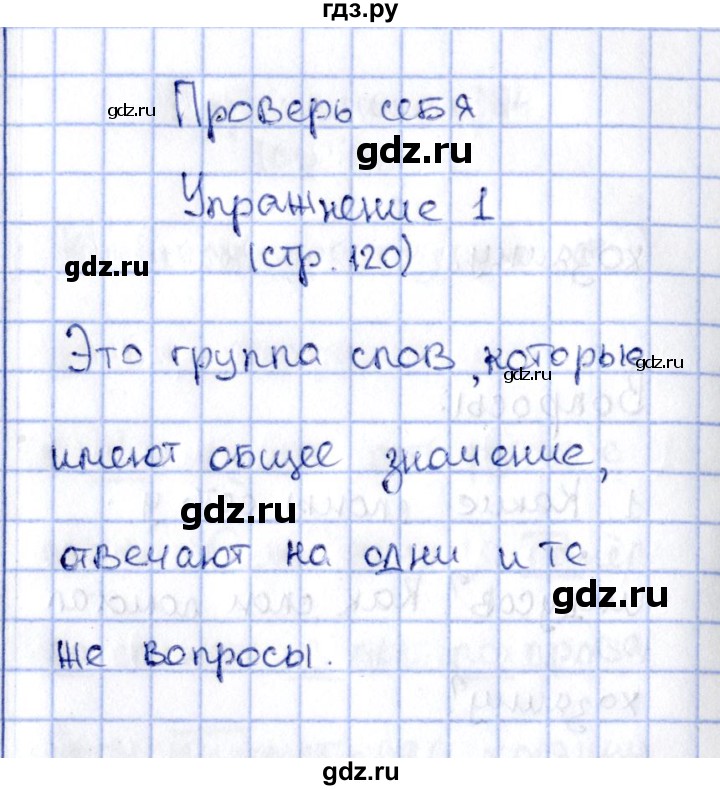 гдз.ру
Проверь себя
gdz.ru
gdz.ru
Упражнение 1
gdz.ru
(стр. 120)
Это группа слов, которые
gdz.ru
gdz.ru
имеют общее значение,
gdz.ru
отвечают на одни и те
gdz.ru
же вопросы.
gdz.ru